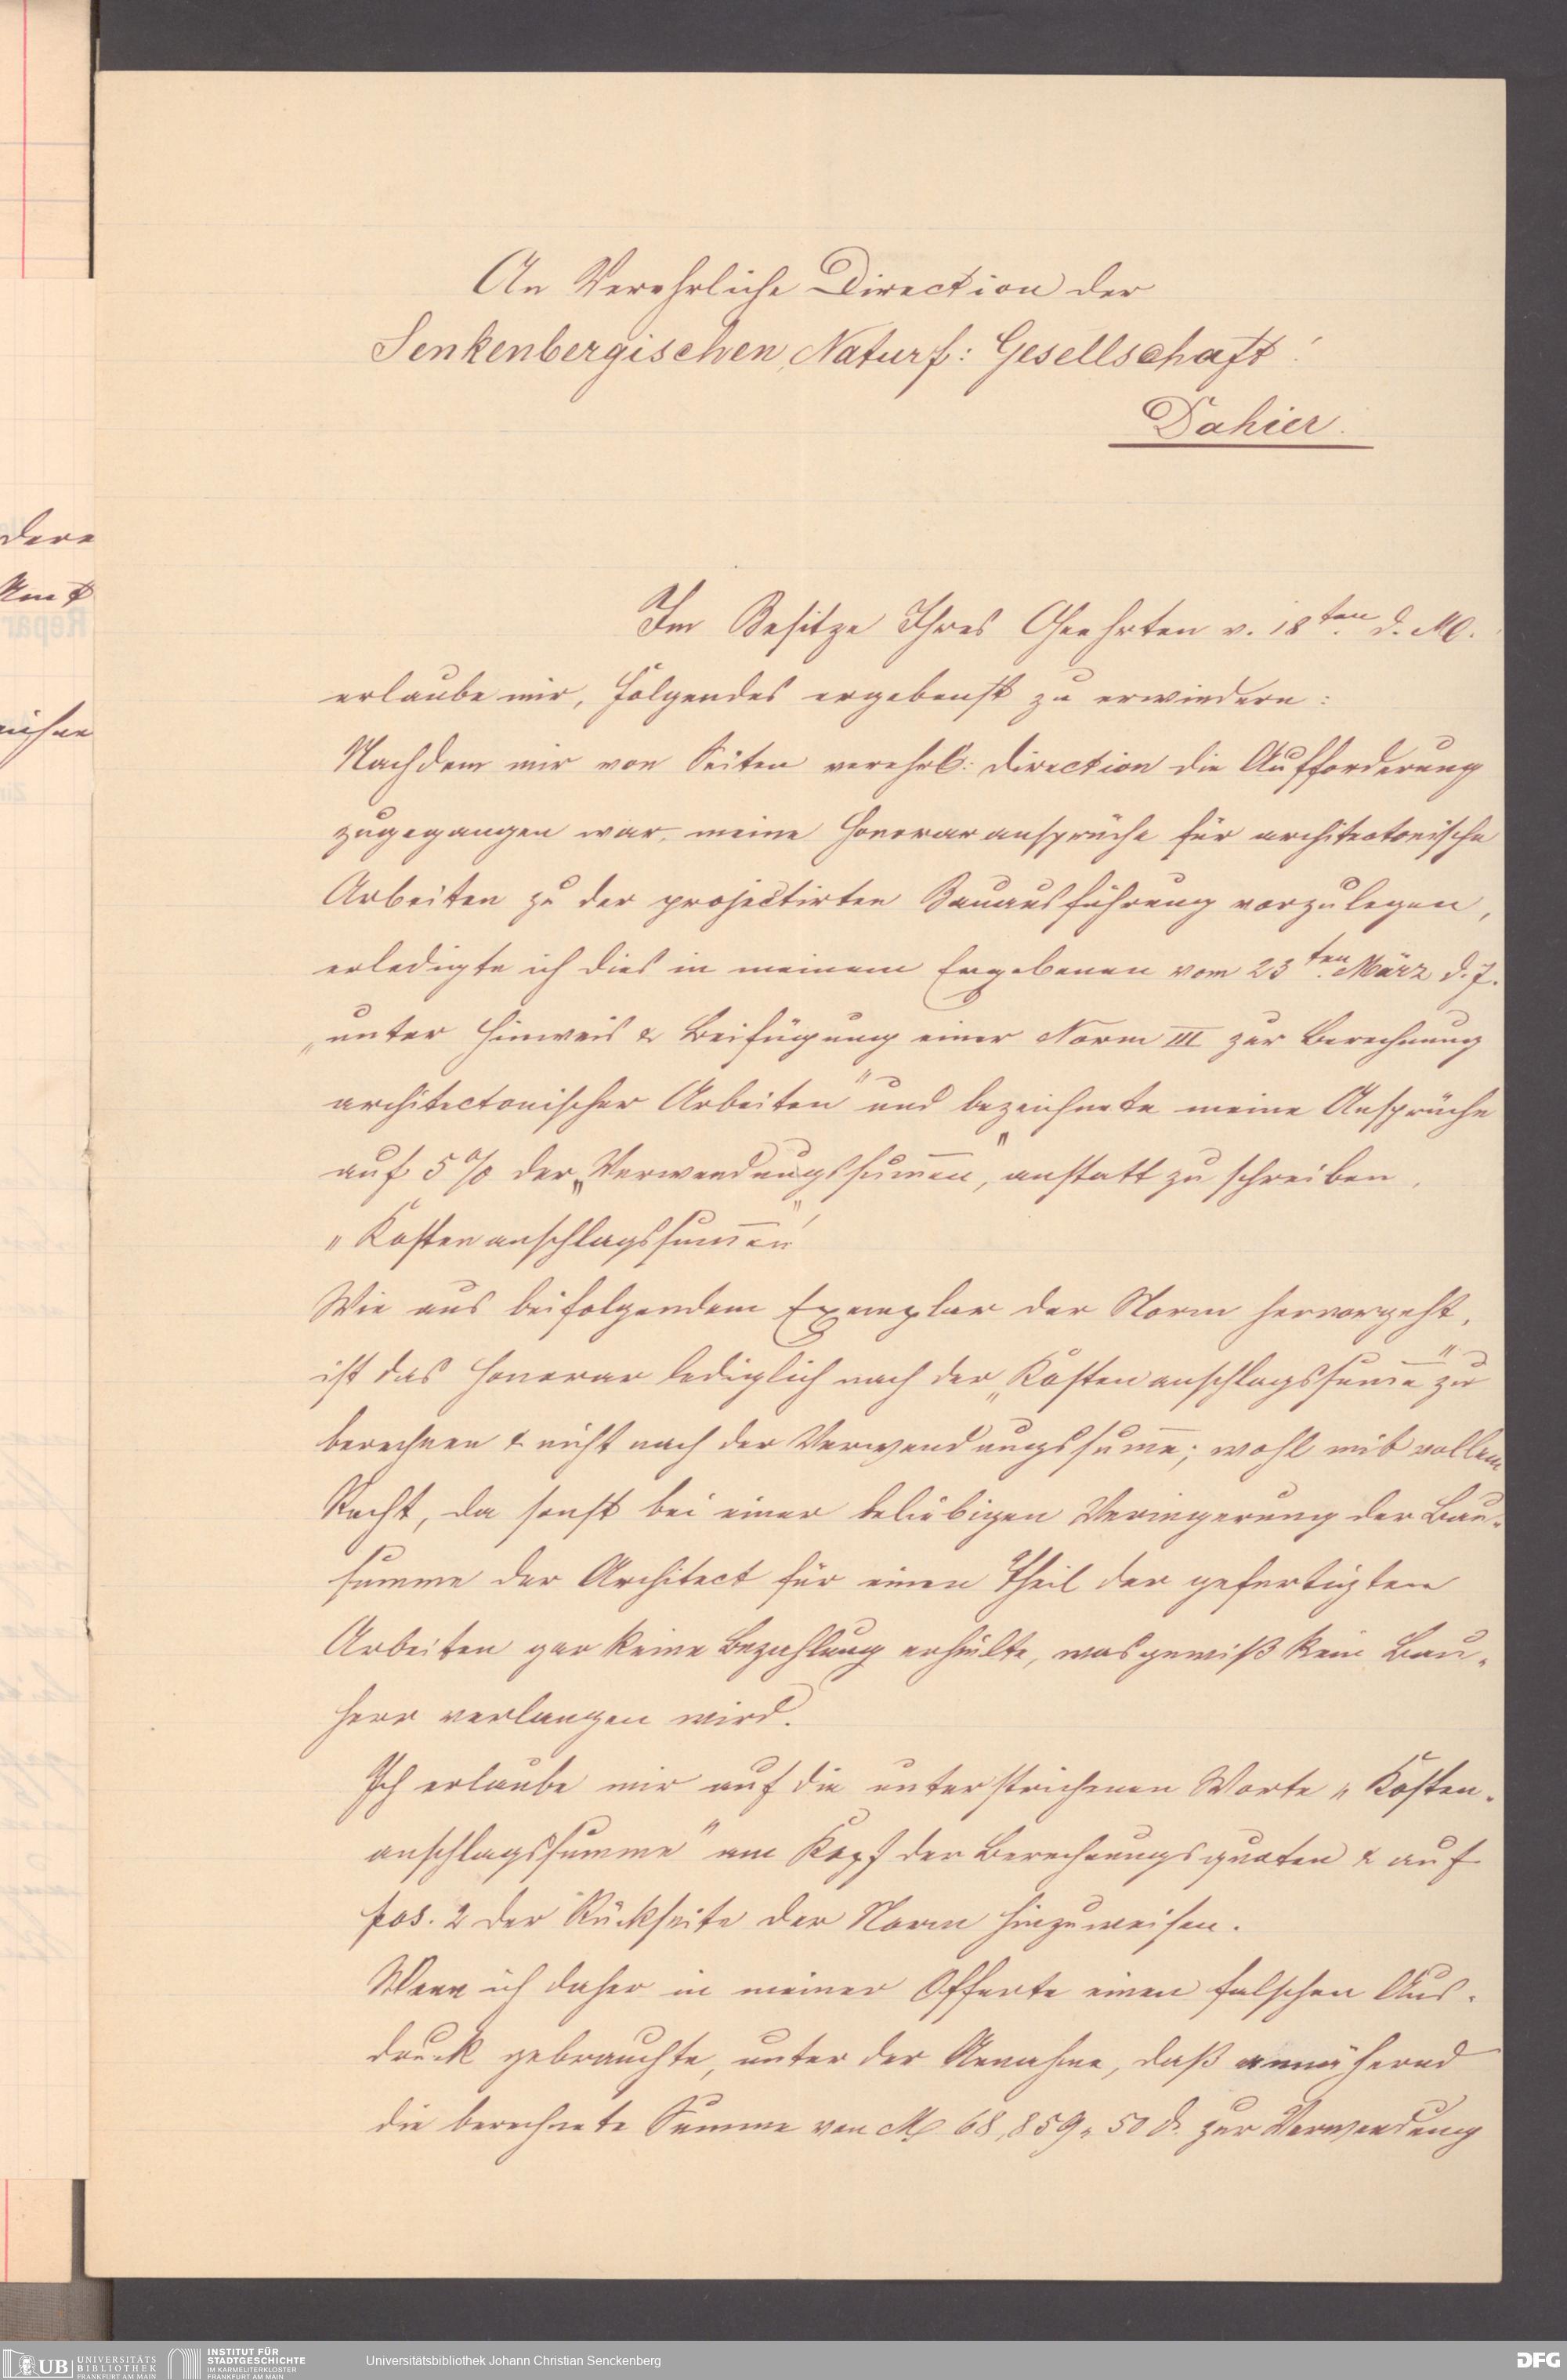 An Verehrliche Direction der
Senkenbergischen Naturf: Gesellschaft!
Dahier.
Im Besitze Ihres Geehrten v. 18ten d. M.
erlaube mir, Folgendes ergebenst zu erwiedern:
Nachdem mir von Seiten verehrl: Direction die Aufforderung
zugegangen war, meine Honoraransprüche für architectonische
Arbeiten zu der projectirten Bauausführung vorzulegen,
erledigte ich dies in meinem Ergebenen vom 23ten März d. J.
„unter Hinweis & Beifügung einer Norm III zur Berechnung
architectonischer Arbeiten" und bezeichnete meine Ansprüche
auf 5% der „Verwendungssum̅en", anstatt zu schreiben,
„Kostenanschlagssum̅en"!
Wie aus beifolgendem Exemplar der Norm hervorgeht,
ist das Honorar lediglich nach der „Kostenanschlagssum̅e" zu
berechnen & nicht nach der Verwendungssum̅e; wohl mit vollem
Recht, da sonst bei einer beliebigen Veringerung der Bau-
summe der Architect für einen Theil der gefertigten
Arbeiten gar keine Bezahlung erhielte, was gewiß kein Bau-
herr verlangen wird.
Ich erlaube mir auf die unterstrichenen Worte „Kosten-
anschlagssumme" am Kopf der Berechnungsquoten & auf
pos. 2 der Rückseite der Norm hinzuweisen.
Wenn ich daher in meiner Offerte einen falschen Aus-
druck gebrauchte, unter der Annahme, daß annähernd
die berechnete Summe von M 68,859„ 50 d. zur Verwendung
dere
nicht
Repar
UB UNIVERSITÄTS
BIBLIOTHEK
FRANKFURT AM MAIN
INSTITUT FÜR
STADTGESCHICHTE
IM KARMELITERKLOSTER
FRANKFURT AM MAIN
Universitätsbibliothek Johann Christian Senckenberg
DFG